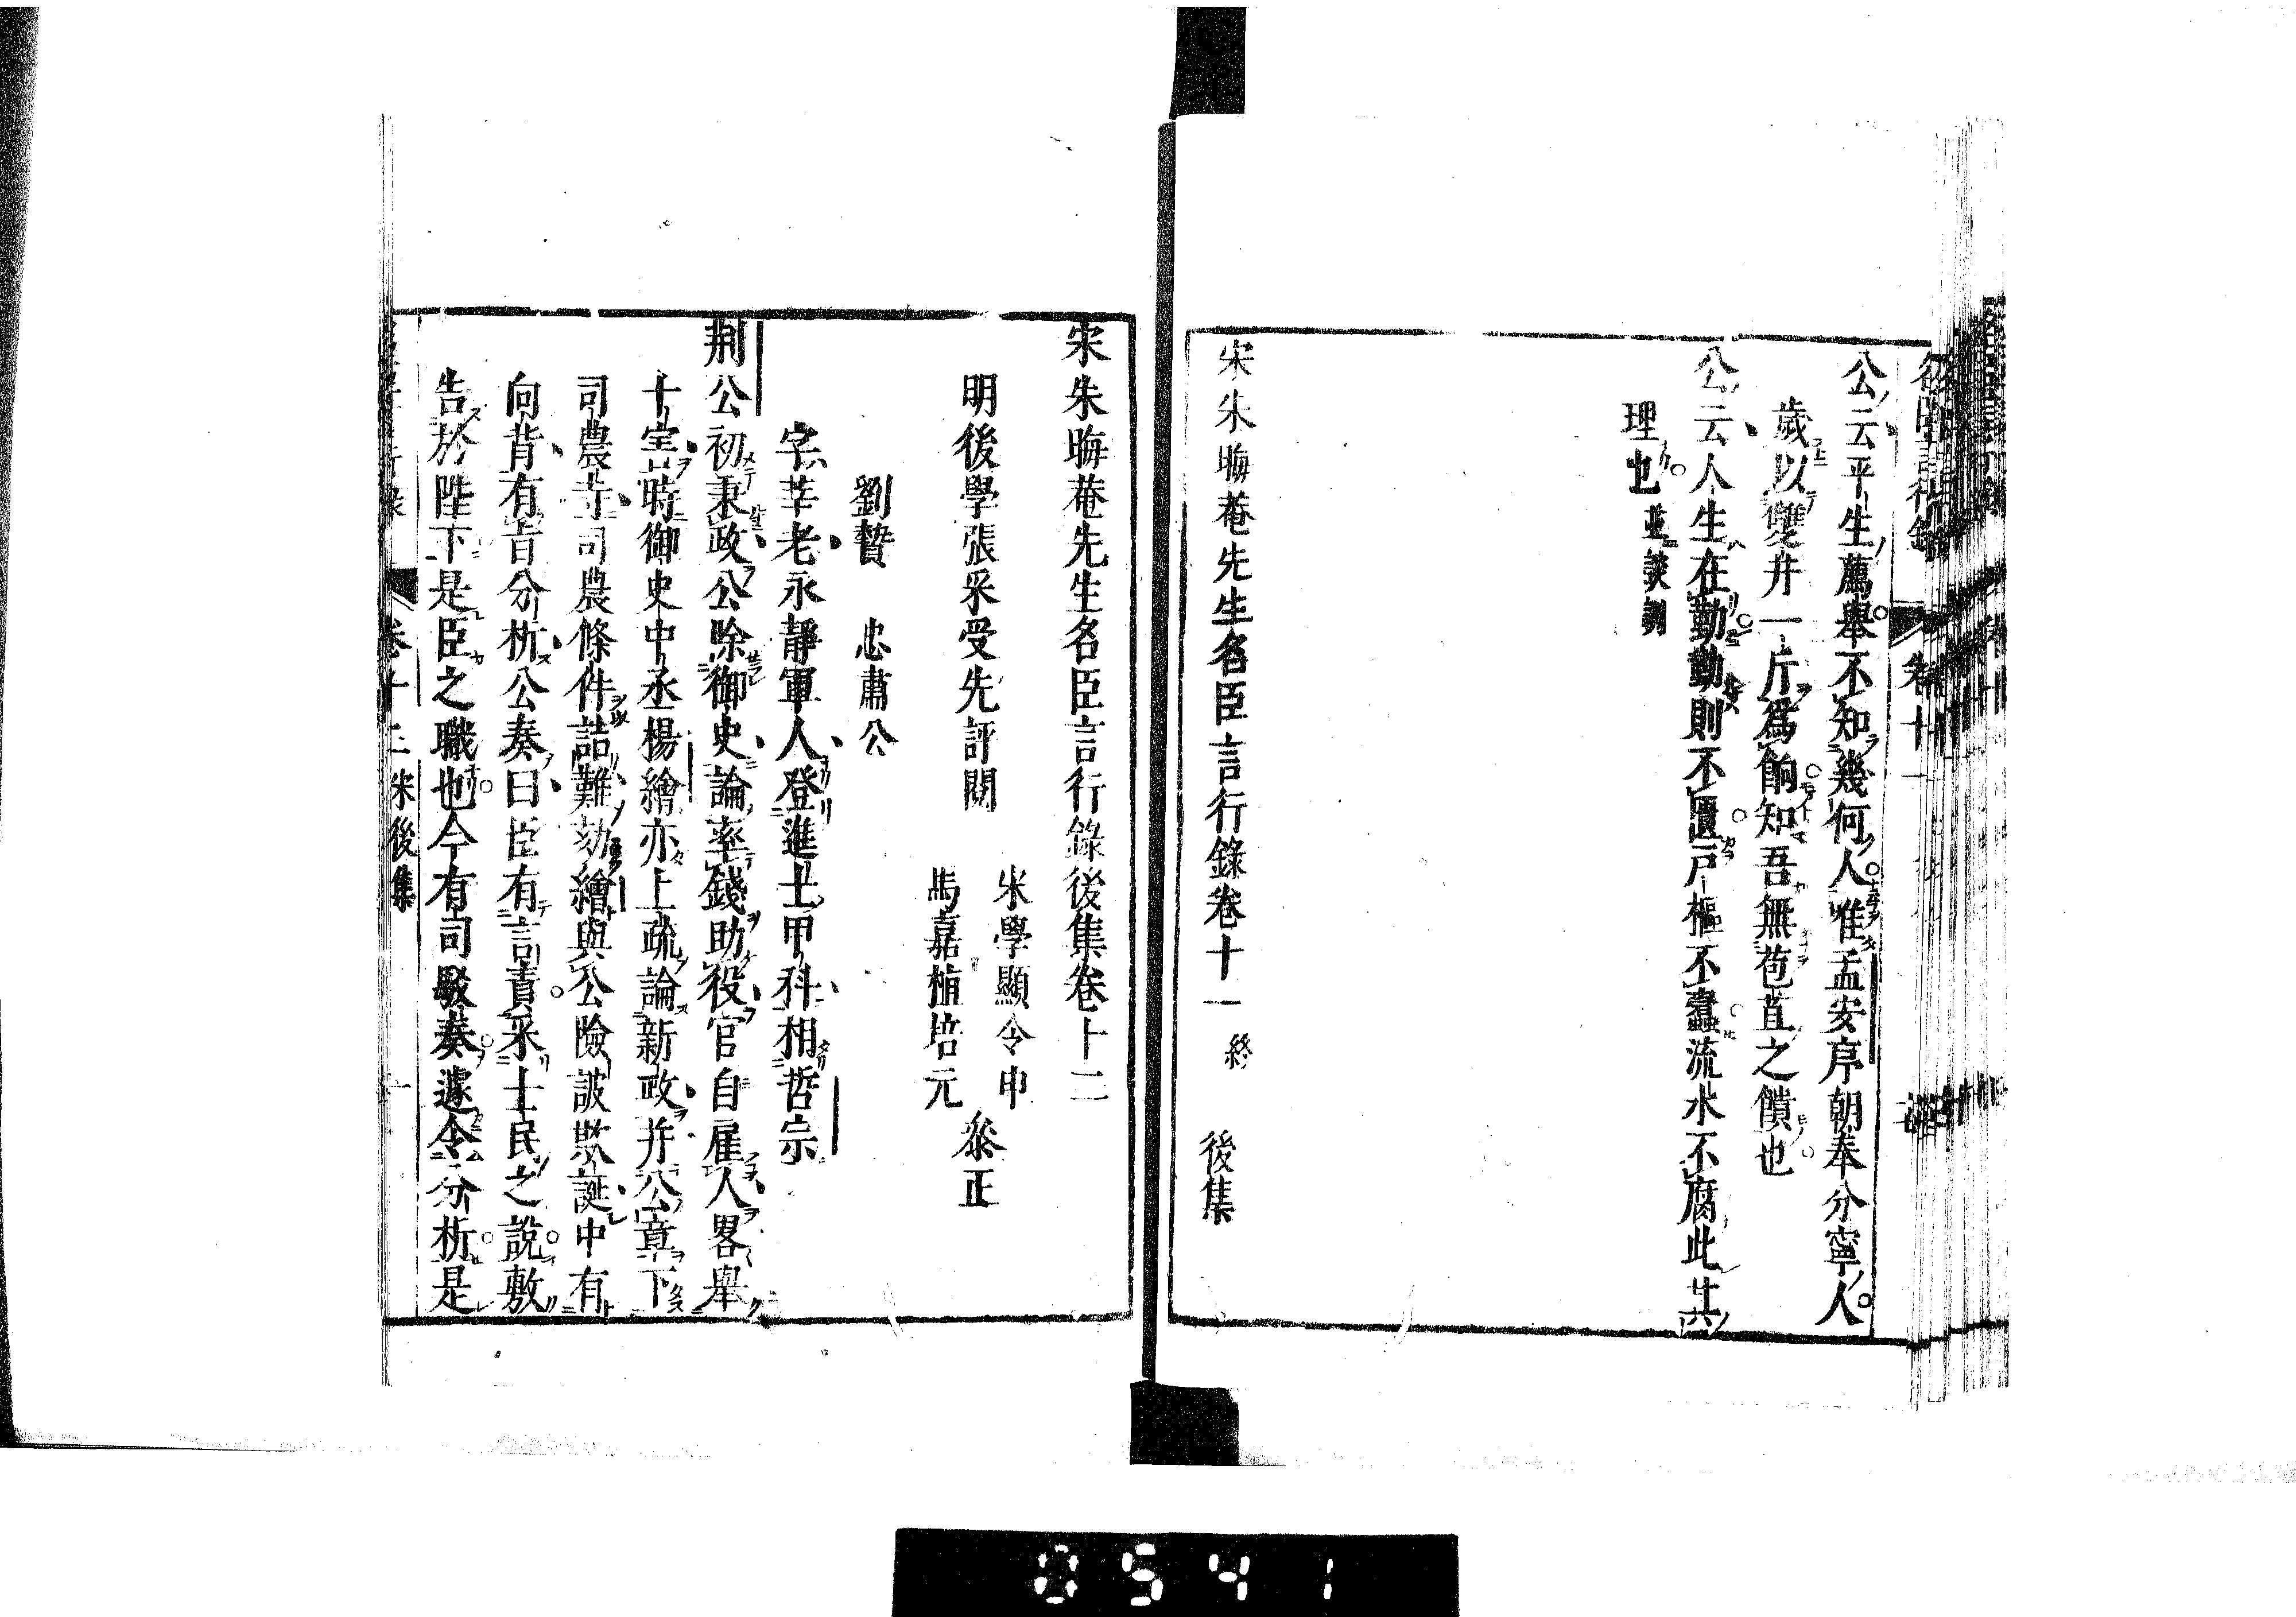 公云平生薦舉不知幾何人唯孟安序朝奉分寧人
歲以雙井一斤爲餉知吾無苞苴之饋也
公云人生在勤勤則不匱戸樞不蠹流水不腐此其
理也並談訓
宋朱晦菴先生名臣言行錄卷十一終 後集
宋朱晦菴先生名臣言行錄後集卷十二
明後學張采受先評閱
宋學顯令申
馬嘉植培元
叅正
劉摯 忠肅公
字莘老永靜軍人登進士甲科相哲宗
荆公初秉政公除御史論率錢助役官自雇人畧舉
十害時御史中丞楊繪亦上疏論新政并公章下
司農寺司農條件詰難劾繪與公險詖欺誕中有
向背有旨分析公奏曰臣有言責采士民之說敷
告於陛下是臣之職也今有司駁奏遽令分析是
卷十二 宋後集 一
0541